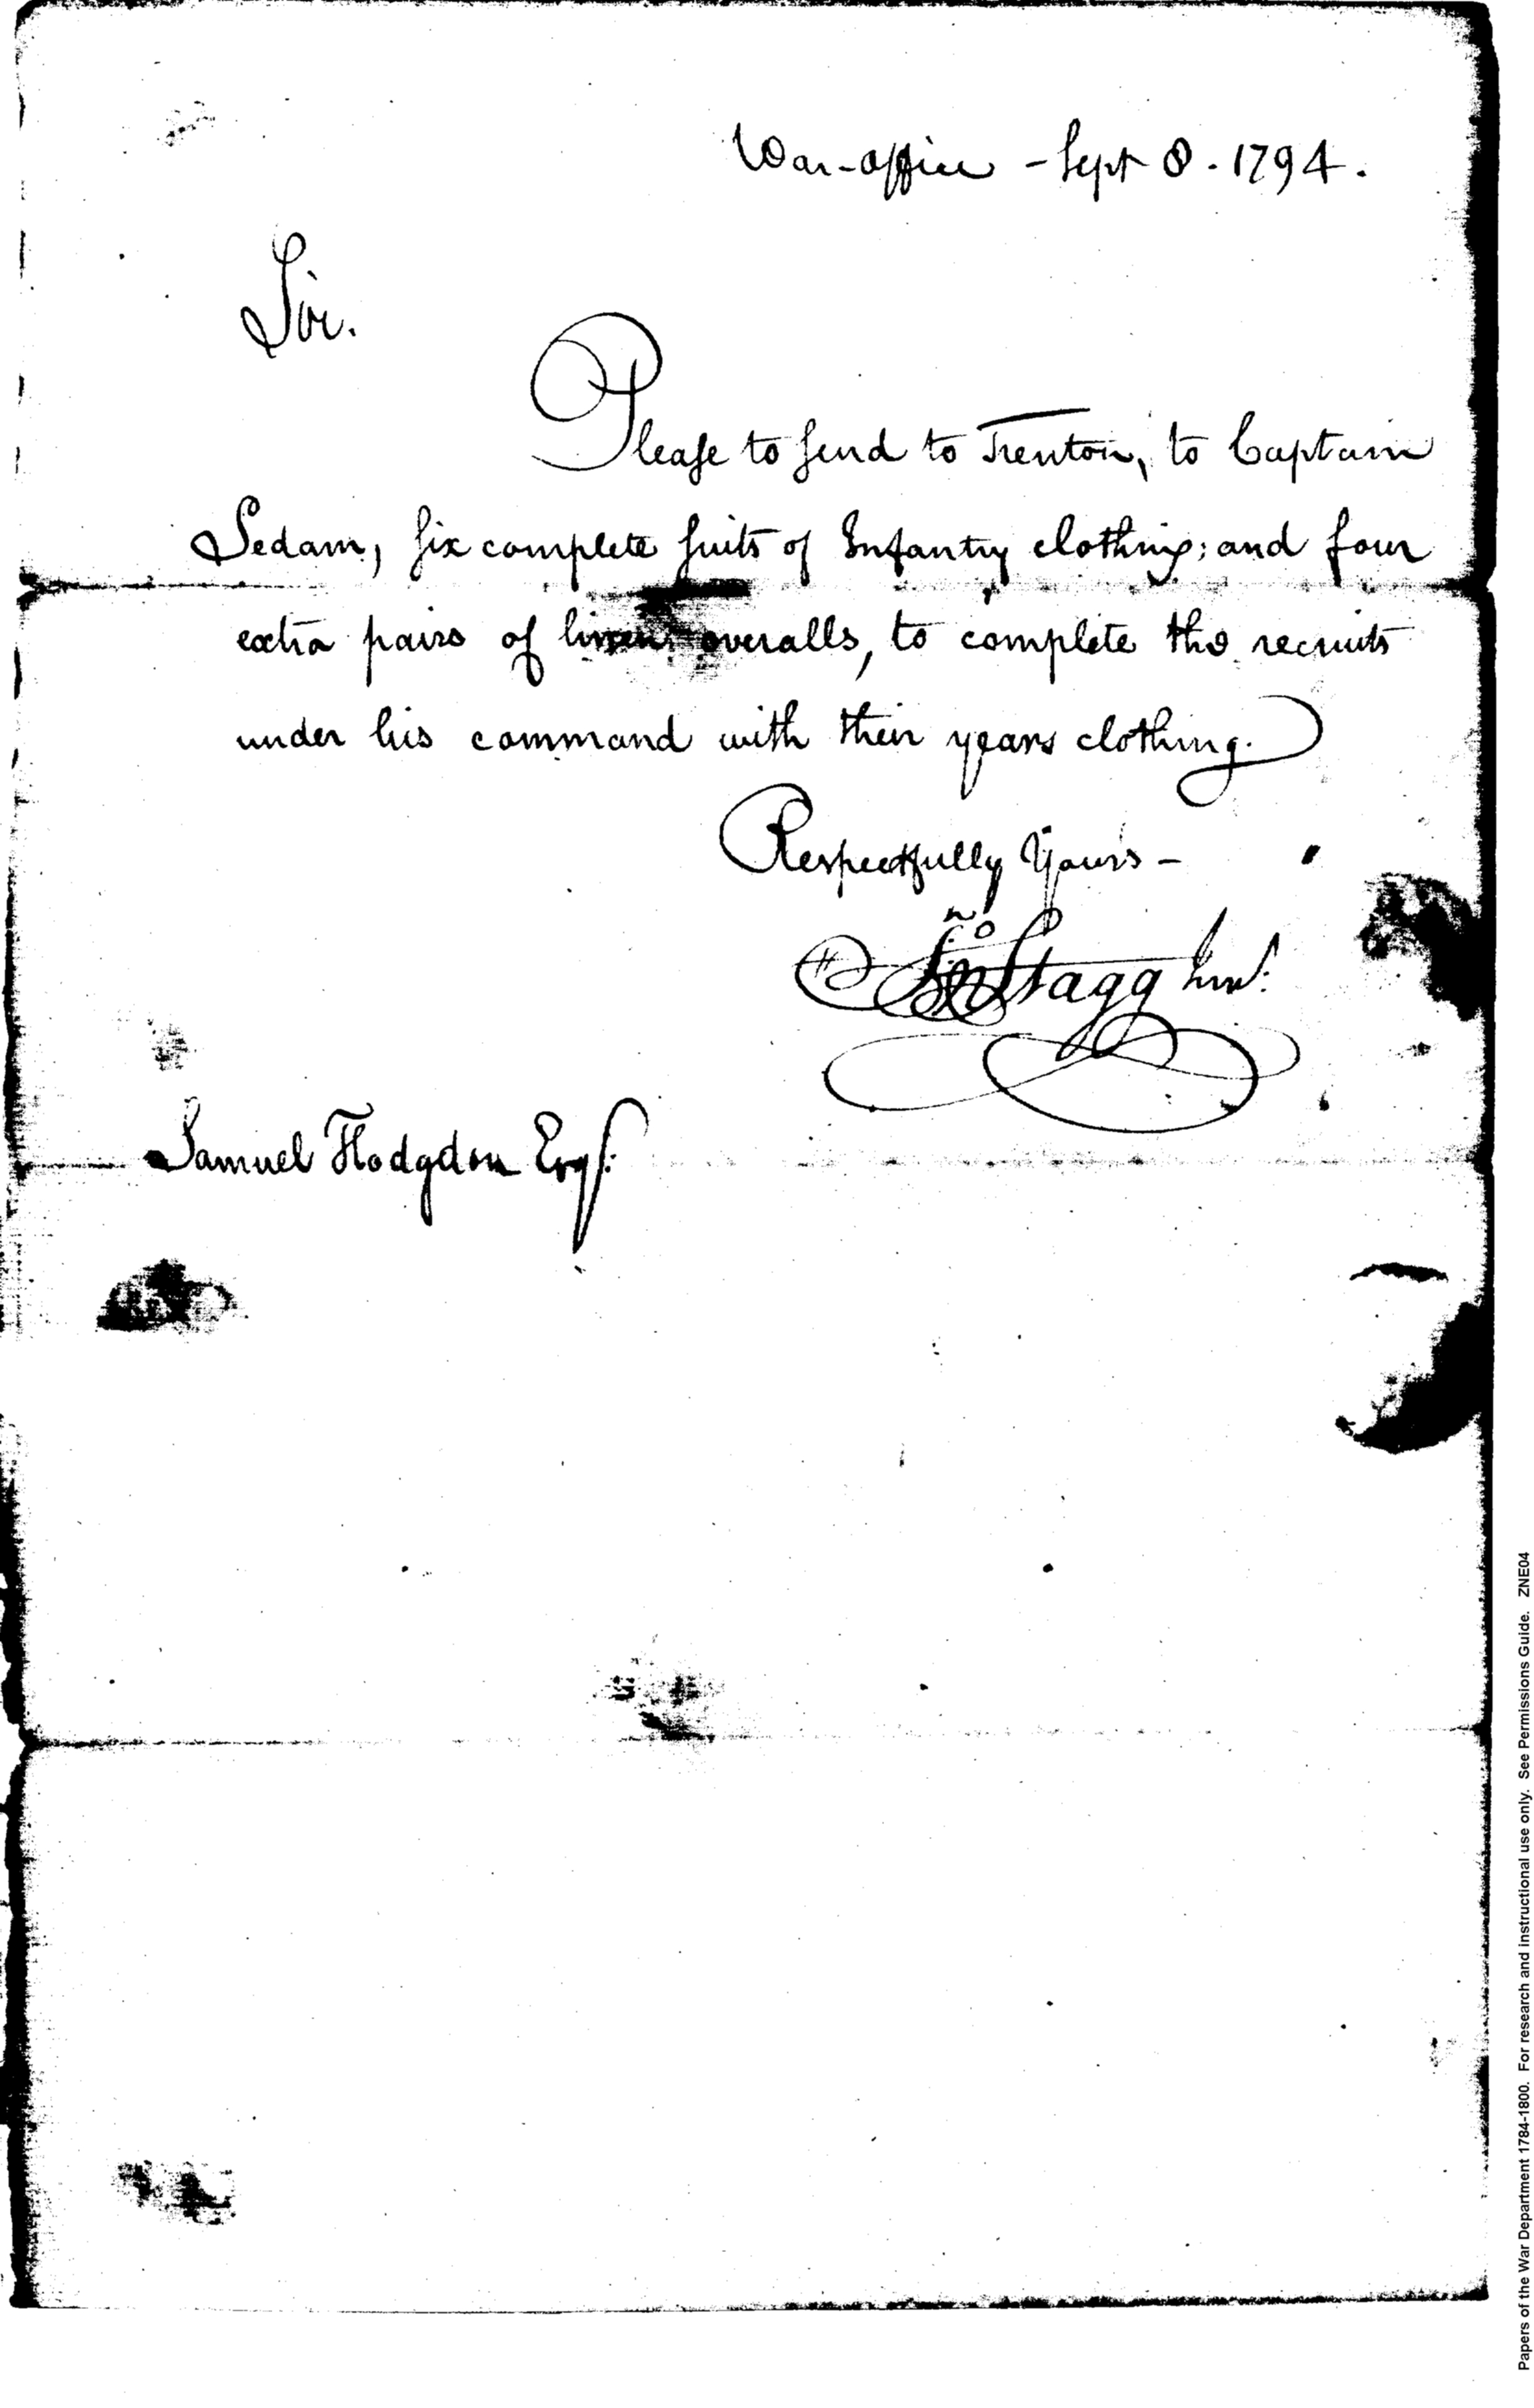 War-office - Sept 8. 1794.
Sir.
Please to send to Trenton, to Captain
Sedam, six complete suits of Infantry clothing; and four
extra pairs of linen overalls, to complete the recruits
under his command with their years clothing.
Respectfully Yours -
Jno Stagg Junr:
Samuel Hodgdon Esqr:
Papers of the War Department 1784-1800. For research and instructional use only. See Permissions Guide. ZNE04